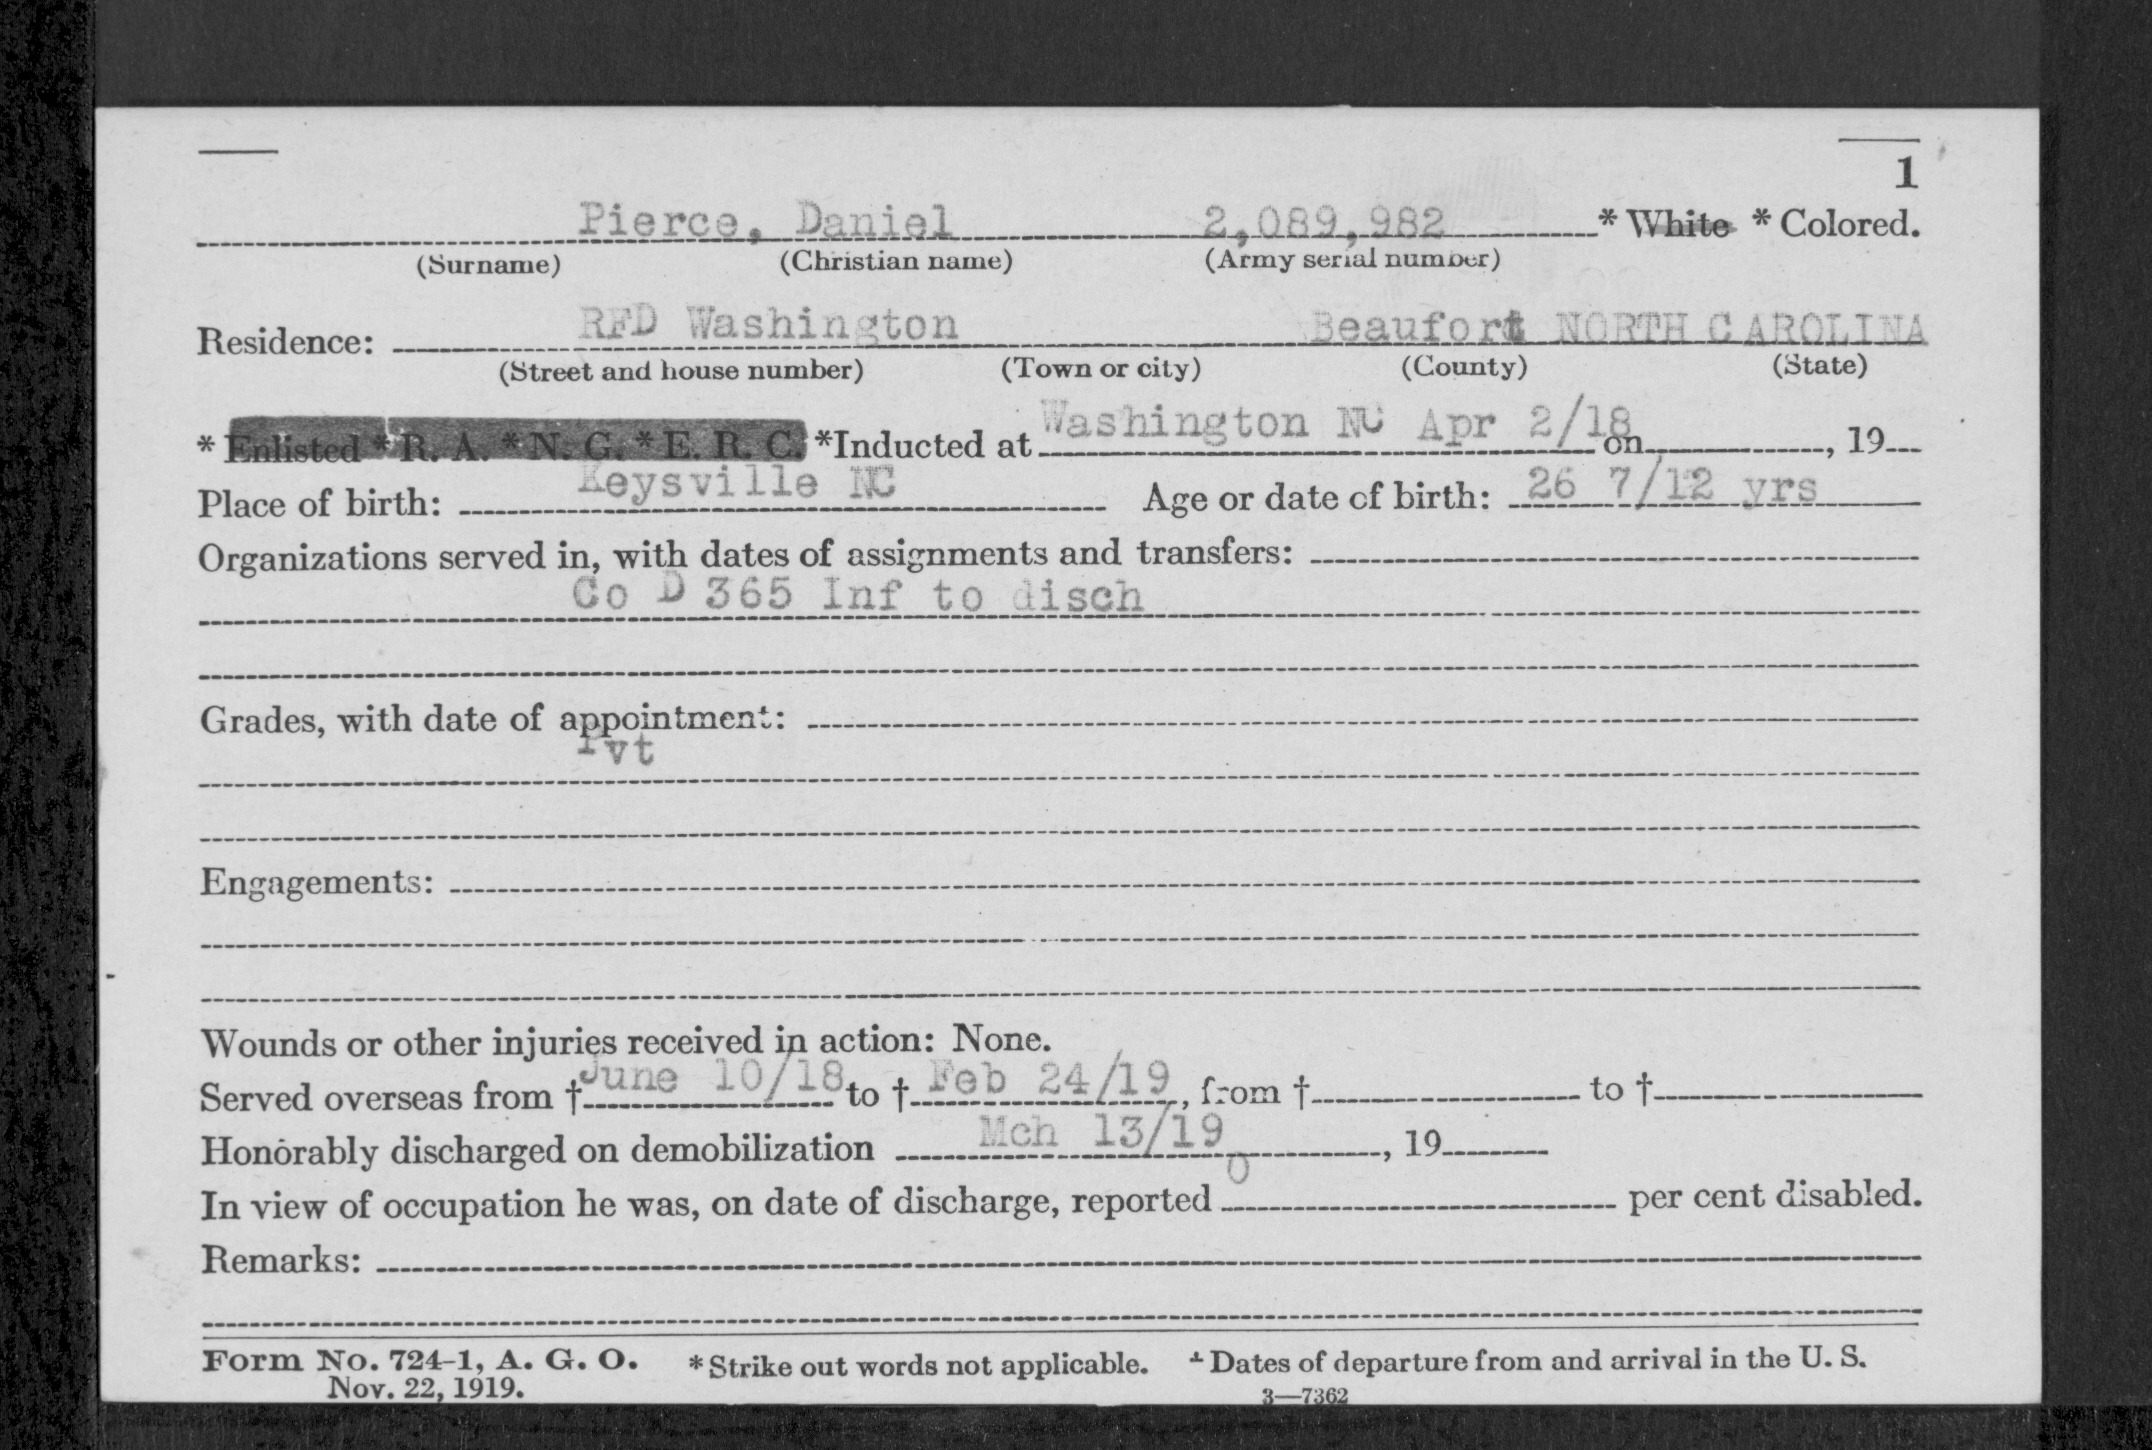 1
Pierce, Daniel 2,089,982 * White * Colored.
(Surname) (Christian name) (Army serial number)
Residence: RFD Washington Beaufort NORTH CAROLINA
(Street and house number) (Town or city) (County) (State)
* Enlisted * R. A. * N. G. * E. R. C. *Inducted at Washington NC Apr 2/18 on , 19
Place of birth: Keysville NC Age or date of birth: 26 7/12 yrs
Organizations served in, with dates of assignments and transfers:
Co D 365 Inf to disch
Grades, with date of appointment:
Pvt
Engagements:
Wounds or other injuries received in action: None.
Served overseas from † June 10/18 to † Feb 24/19, from † to †
Honorably discharged on demobilization Mch 13/19 , 19
In view of occupation he was, on date of discharge, reported 0 per cent disabled.
Remarks:
Form No. 724-1, A. G. O. * Strike out words not applicable. † Dates of departure from and arrival in the U. S.
Nov. 22, 1919. 3—7362